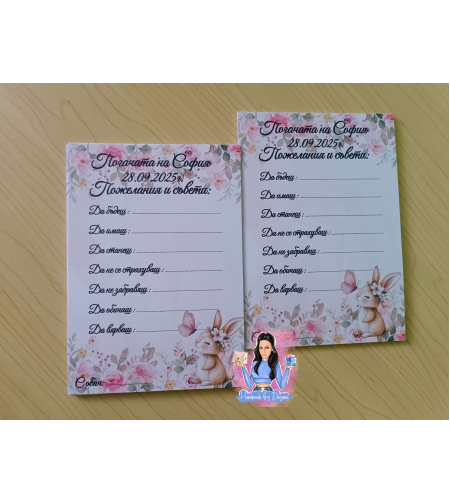 Погачата на София
28.09.2025г.
Пожелания и съвети:
Да бъдеш :
Да имаш :
Да станеш :
Да не се страхуваш :
Да не забравиш :
Да обичаш :
Да вярваш :
Погачата на София
28.09.2025г.
Пожелания и съвети:
Да бъдеш :
Да имаш :
Да станеш :
Да не се страхуваш :
Да не забравиш :
Да обичаш :
Да вярваш :
Handmade by